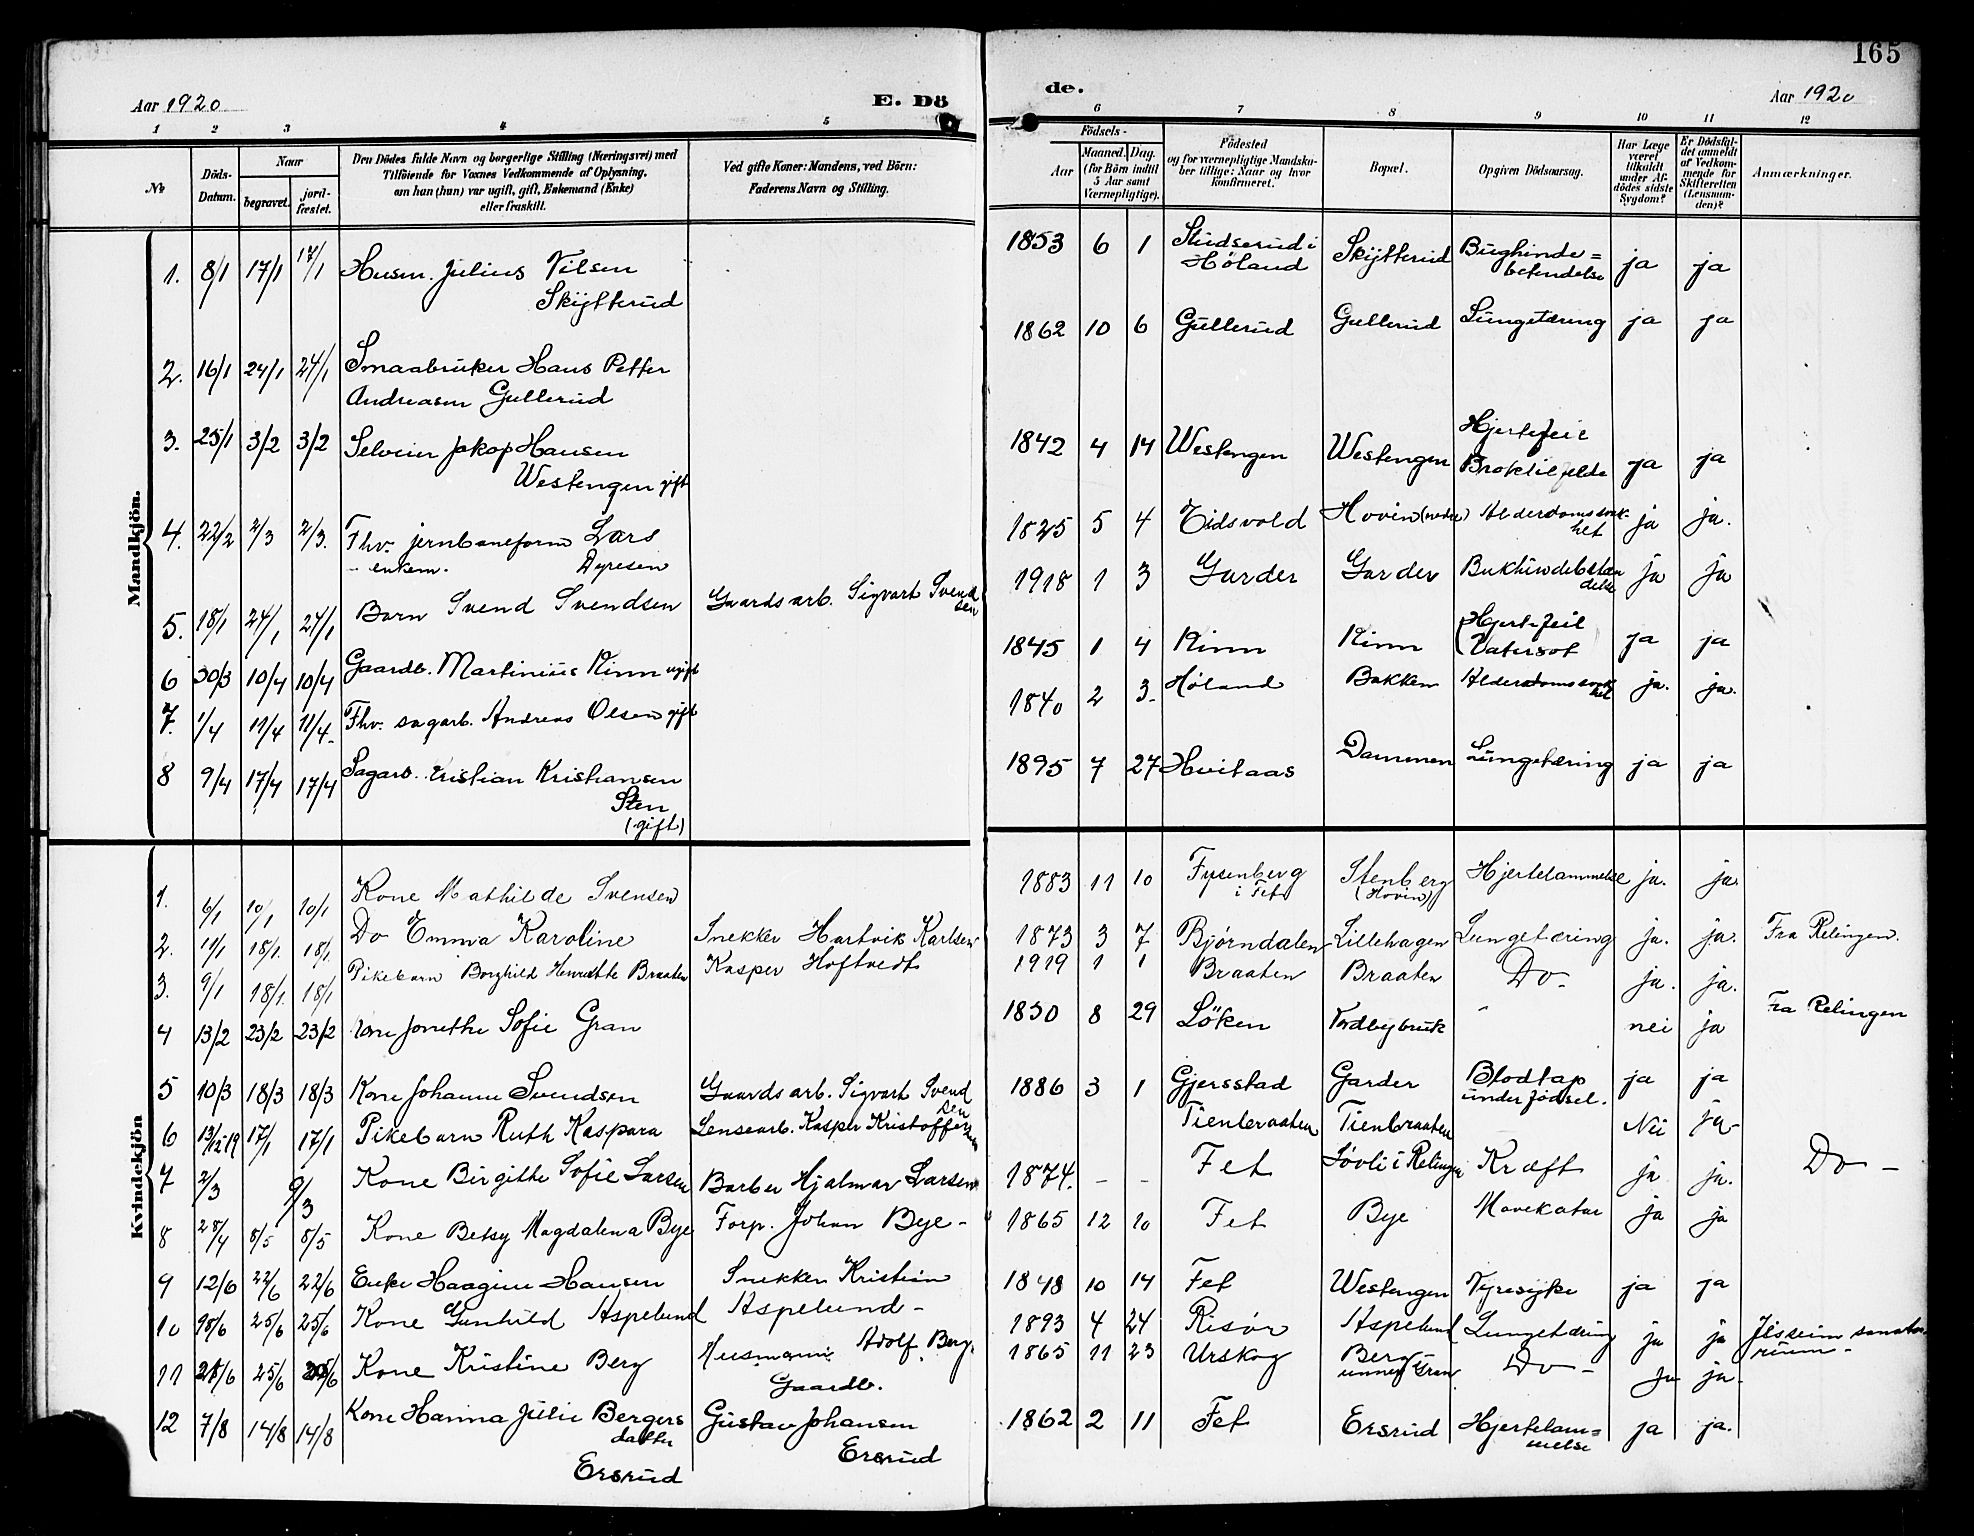 165
Aar 1920 E. Dö de. Aar 1920
1 2 3 4 5 6 7 8 9 10 11 12
No
Döds-
Datum.
Naar
begravet.
jord-
fæstet.
Den Dödes fulde Navn og borgerlige Stilling (Næringsvei) med
Tilföiende for Voxnes Vedkommende af Oplysning,
om han (hun) var ugift, gift, Enkemand (Enke)
eller fraskilt.
Ved gifte Koner: Mandens, ved Börn:
Faderens Navn og Stilling.
Födsels-
Aar
Maaned. Dag.
(for Börn indtil
5 Aar samt
Værnepligtige).
Födested
og for værnepligtige Mandska-
ber tillige: Naar og hvor
konfirmeret.
Bopæl.
Opgiven Dödsaarsag.
Har Læge
været
tilkaldt
under Af-
dödes sidste
Sygdom?
Er Dödsfal-
det anmeldt
af Vedkom-
mende for
Skifteretten
(Lensman-
den)?
Anmærkninger.
Mandkjön.
1. 8/1 17/1 17/1 Husm. Julius Nilsen 1853 6 1 Studserud i Skjÿtterud Bughinde= ja ja
Skÿtterud Høland betendelse
2. 16/1 24/1 24/1 Smaabruker Hans Petter 1862 10 6 Gullerud Gullerud Lungetæring ja ja
Andreasen Gullerud
3. 25/1 3/2 3/2 Selveier Jakop Hansen 1842 4 14 Westengen Westengen Hjertefeil ja ja
Westengen gift Broktilfelde
4. 22/2 2/3 2/3. Fhv. jernbaneform Lars 1825 5 4 Eidsvold Hovin (nedre) Alderdomssvak- ja ja.
- enkem. Dyresen het
5. 18/1 24/1 24/1 Barn Svend Svendsen Gaardsarb. Sigvart Svend 1918 1 3 Garder Garder Bukhindebetæn ja ja
sen delse
6 30/3 10/4 10/4 Gaardb. Martinius Ninn ugift 1845 1 4 Ninn Ninn Hjertefeil ja ja
Vatersot
7. 1/4 11/4 11/4- Fhv. sagarb. Andreas Olsen gift 1840 2 3- Høland Bakken Alderdomssvak ja. ja.
het
8 9/4 17/4 17/4 Sagarb. Kristian Kristiansen 1895 7 27 Hvitaas Dammen Lungetæring ja ja
Sten
(gift)
Kvindekjön
1. 6/1 10/1 10/1 Kone Mathilde Svensen 1883 11 10 Fysenberg Stenberg Hjertelammelse ja. ja.
i Fet (Hovin)
2. 11/1 18/1. 18/1. Do Emma Karoline Snekker Hartvik Karlsen 1873 3 7 Bjørndalen Lillehagen Lungetæring ja. ja. Fra Relingen.
3. 9/1 18/1. 18/1 Pikebarn Borghild Henriette Braaten Kasper Hoftvedt 1919 1 1 Braaten Braaten Do- ja. ja.
4 13/2 23/2 23/2 Kone Jonethe Sofie Gran 1830 8 29 Löken Nordbybruk - nei ja Fra Relingen
5 10/3 18/3 18/3 Kone Johanne Svendsen Gaardsarb. Sigvart Svend 1886 3 1 Gjersstad Garder Blodtap ja ja
sen under födsel.
6 13/12-19 17/1 17/1 Pikebarn Ruth Kaspara Lensearb. Kasper Kristoffer Tienbraaten Tienbraaten Nei ja-
sen
7 2/3 9/3 Kone Birgithe Sofie Larsen Barber Hjalmar Larsen 1874. - - Fet Løvli i Relingen Kræft ja ja. Do -
8 28/4 8/5 8/5 Kone Betsy Magdalena Bye Forp. Johan Bye - 1865 12 10 Fet Bye Mavekatar ja ja
9 12/6 22/6 22/6 Enke Haagine Hansen 1848 10 14 Fet Westengen Nyresyke ja ja
10 18/6 25/6 25/6 Kone Gunhild Aspelund Snekker Kristian 1893 4 24 Risör Aspelund Lungetæring ja ja
Aspelund - sanato
rium -
11 25/6 25/6 Kone Kristine Berg Husmann Adolf Berg. 1865 11 23 Urskog Berg Do - ja ja.
Gaardb.
12 7/8 14/8 14/8 Kone Hanna Julie Bergers Gustav Johansen 1862 2 11 Fet Ersrud Hjertelam= ja ja.
datter Ersrud melse
Ersrud